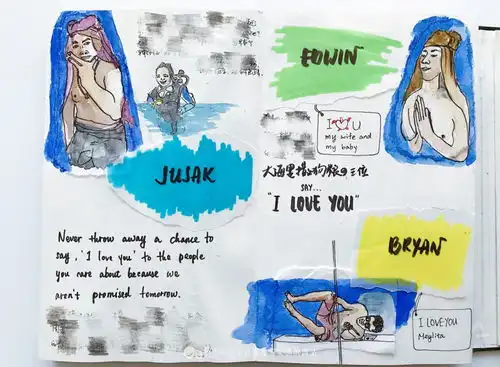 JUSAK
Never throw away a chance to
say, 'I love you' to the people
you care about because we
aren't promised tomorrow.
EDWIN
I U
my wife and
my baby
大海里
三位
SAY...
"I LOVE YOU"
BRYAN
I LOVE YOU
Meylita